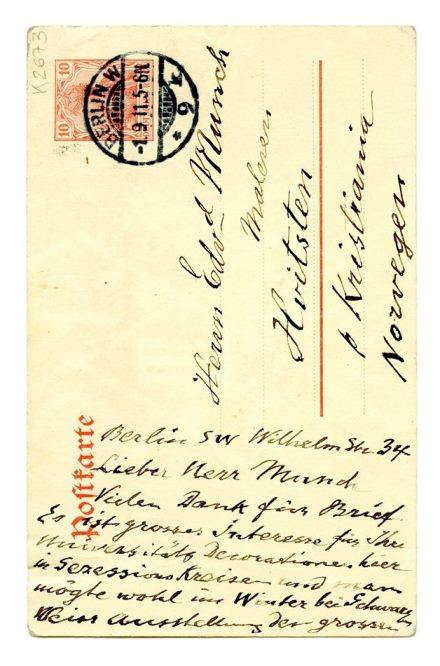 K2673
10 10
BERLIN W
-1.9.11.5-6N.
* 9 k
Herrn Edvd Munch
Maleren
Hvitsten
p Kristiania
Norwegen
Postkarte
Berlin SW Wilhelm Str 34
Lieber Herr Munch
Vielen Dank für Brief
Es ist grosses Interesse für Ihre
Universitäts Decorationen hier
in Sezessions Kreisen und man
mögte wohl im Winter bei Schwarz
Weiss Ausstellung den grossen